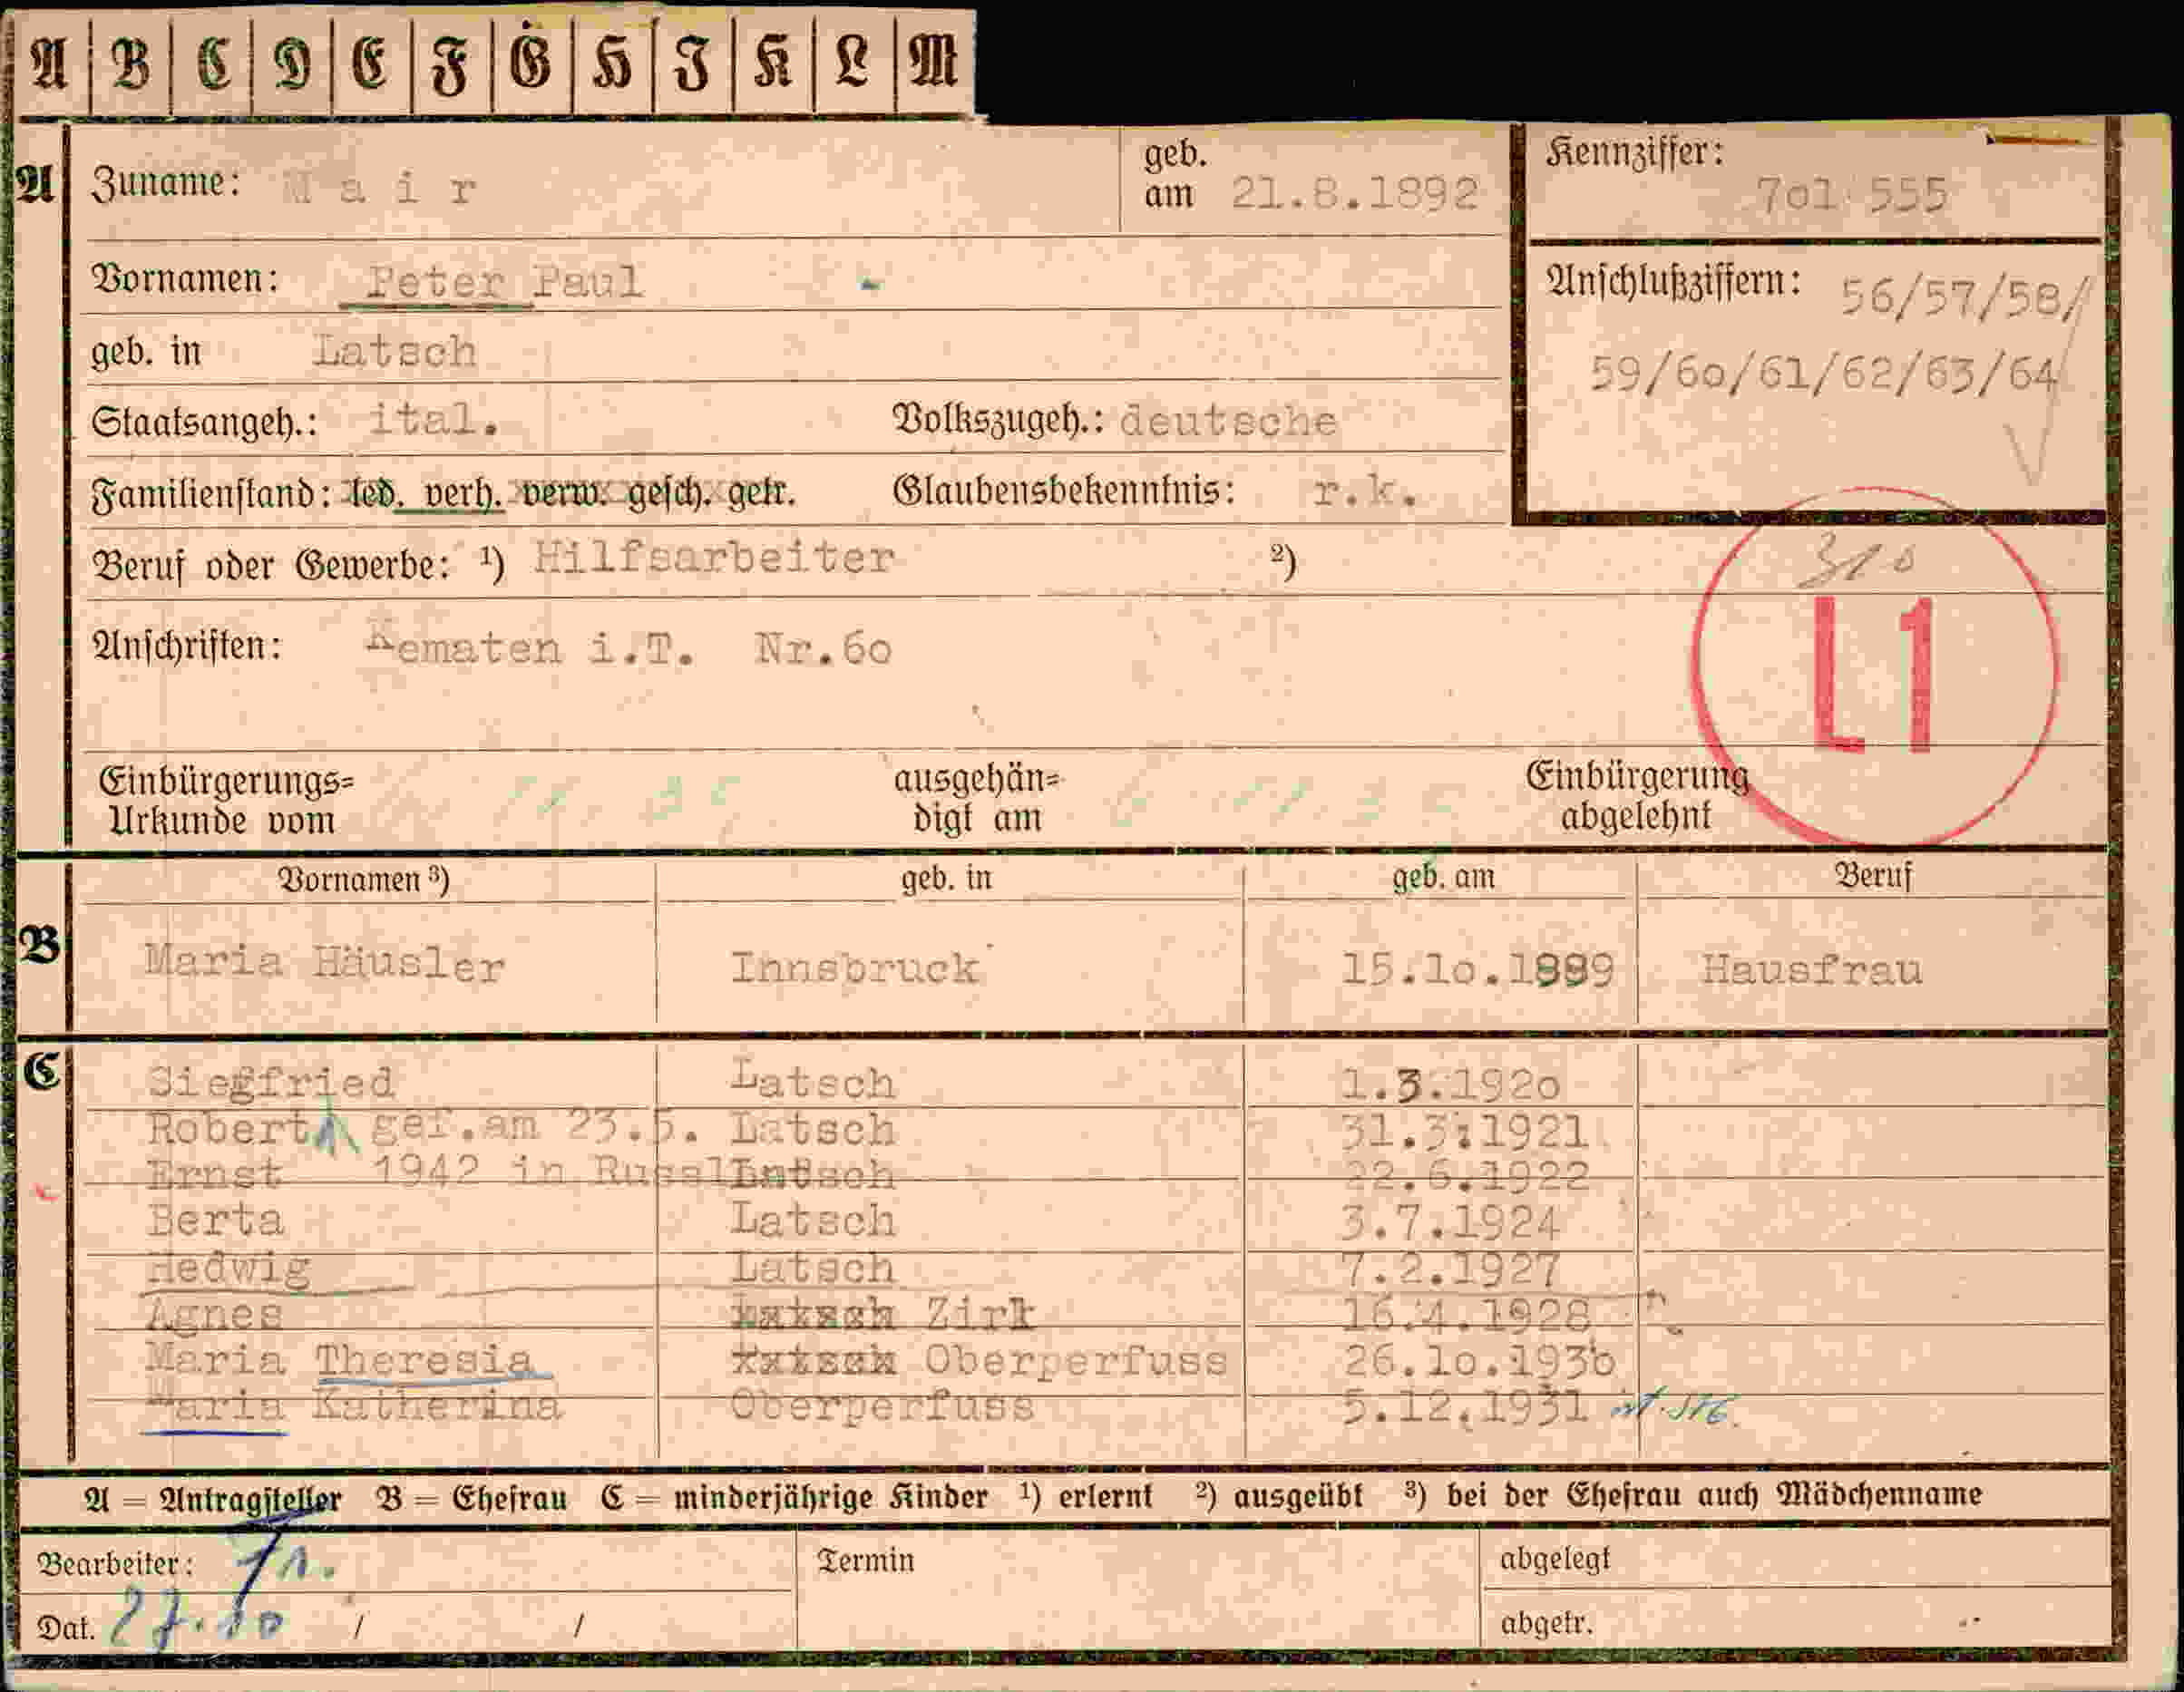 A B C D E F G H I K L M
A Zuname: Mair geb. am 21.8.1892 Kennziffer: 7o1 555
Vornamen: Peter Paul Anschlußziffern: 56/57/58/
59/6o/61/62/63/64
geb. in Latsch
Staatsangeh.: ital. Volkszugeh.: deutsche
Familienstand: led. verh. verw. gesch. getr. Glaubensbekenntnis: r.k.
Beruf oder Gewerbe: ¹) Hilfsarbeiter ²)
Anschriften: Kematen i.T. Nr.6o
L1
Einbürgerungs= Urkunde vom ausgehän= digt am Einbürgerung abgelehnt
Vornamen ³) geb. in geb. am Beruf
B Maria Häusler Innsbruck 15.1o.1889 Hausfrau
C Siegfried Latsch 1.3.192o
Robert gef.am 23.5. Latsch 31.3.1921
Ernst 1942 in Russl Latsch 22.6.1922
Berta Latsch 3.7.1924
Hedwig Latsch 7.2.1927
Agnes Latsch Zirl 16.4.1928
Maria Theresia Latsch Oberperfuss 26.1o.193o
Maria Katherina Oberperfuss 5.12.1931
A = Antragsteller B = Ehefrau C = minderjährige Kinder ¹) erlernt ²) ausgeübt ³) bei der Ehefrau auch Mädchenname
Bearbeiter: Termin abgelegt
Dat. 27.10 / / abgetr.